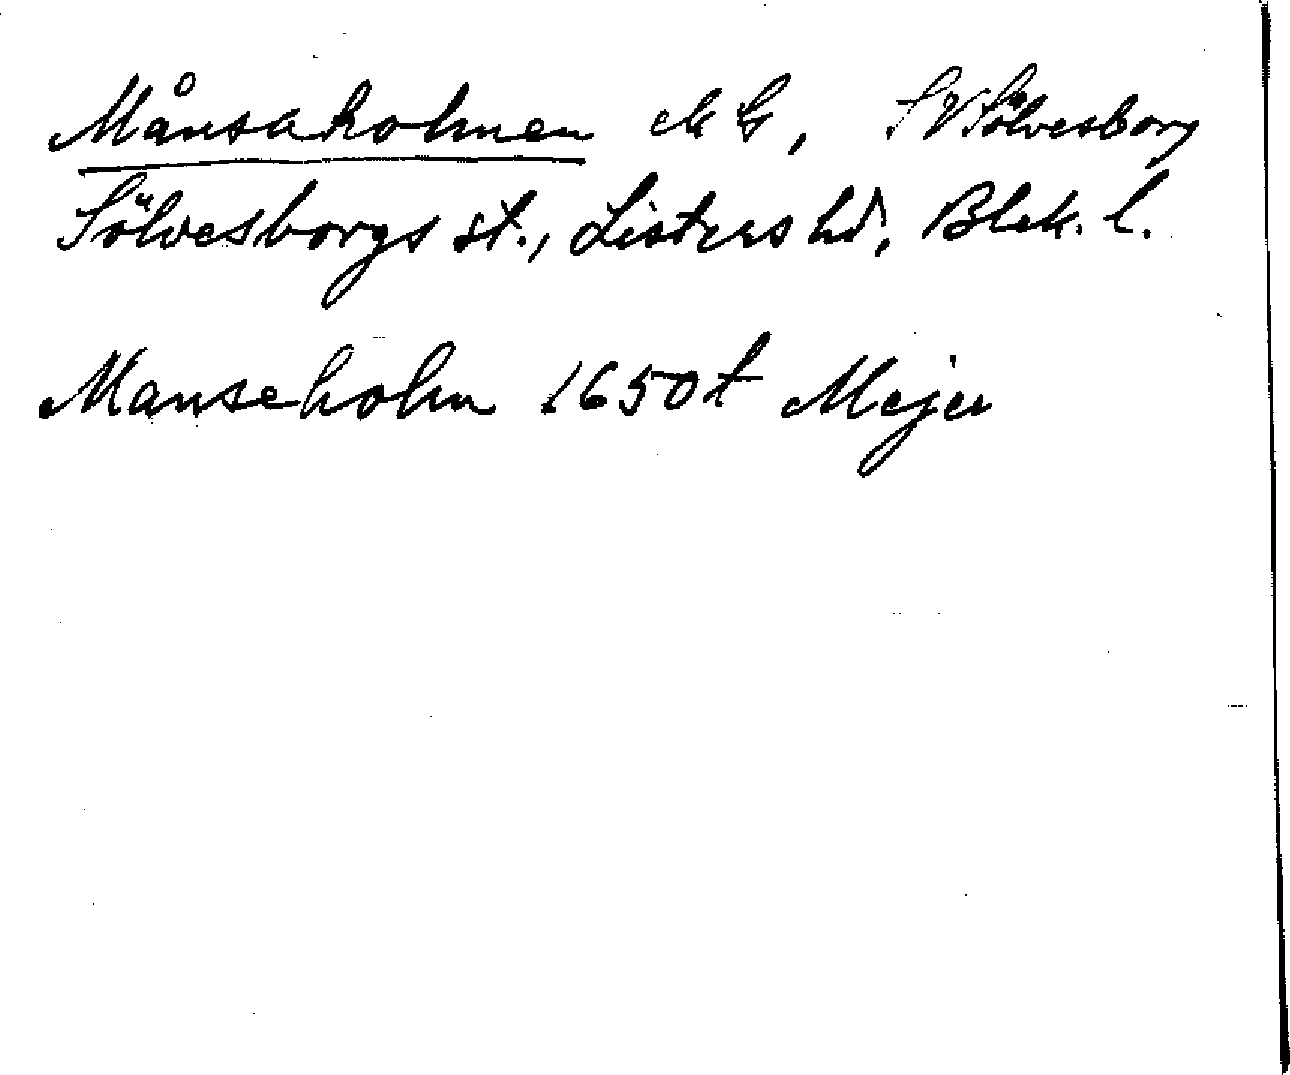 Månsaholmen MG, SV Sölvesborg
Sölvesborgs st., Listers hd, Blek. l.
Manseholm 1650t Mejer